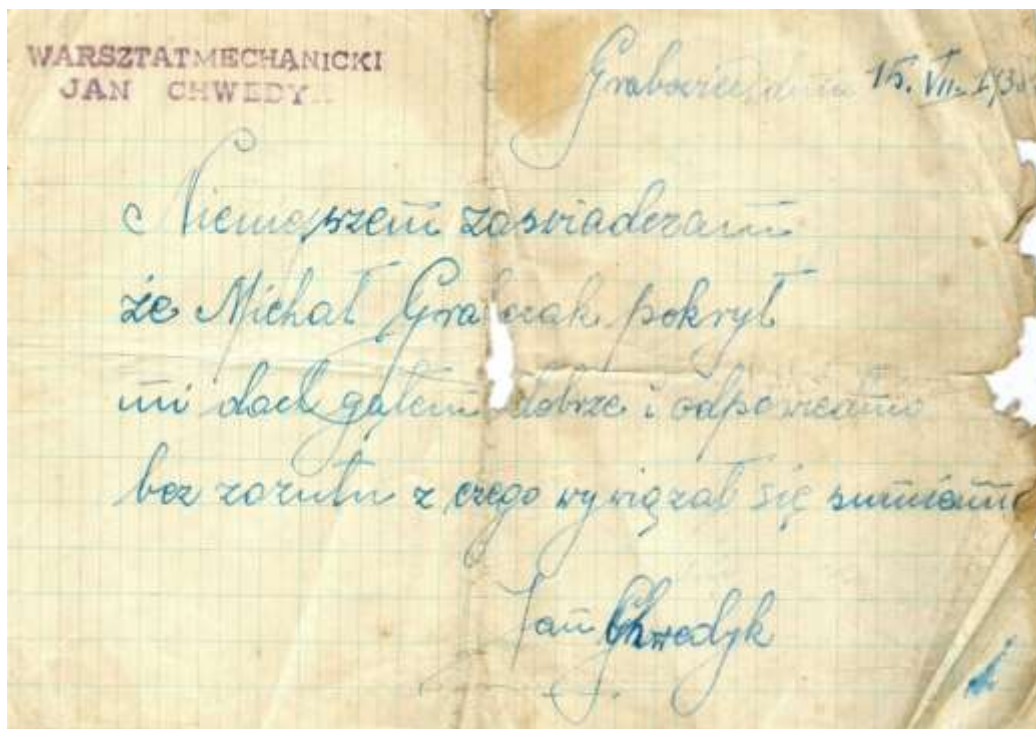 WARSZTAT MECHANICKI
JAN CHWEDY
15. VII. 193
Niniejszem zaświadczam
że Michał Grabczak pokrył
mi dach gątem dobrze i odpowiednio
bez zarzutu z czego wywiązał się sumiennie
Jan Chwedyk